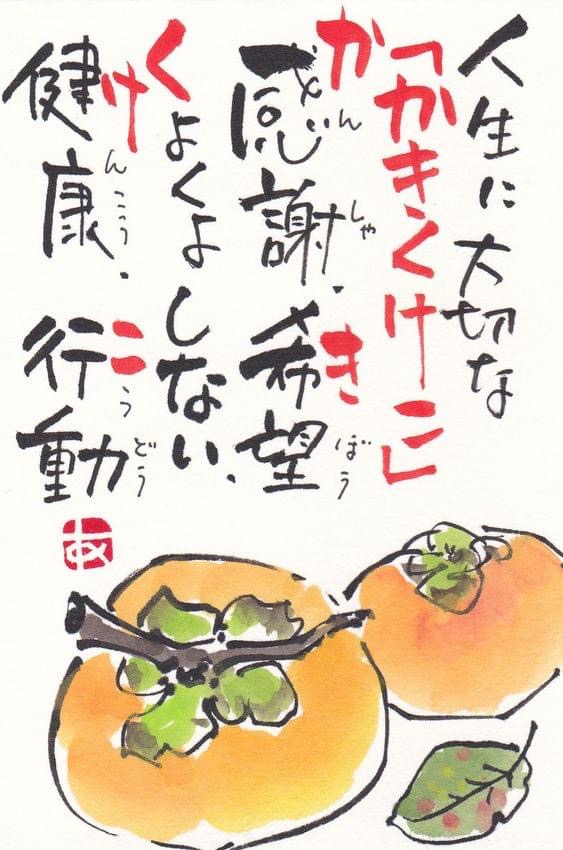 人生に大切な
「かきくけこ」
かんしゃ きぼう
感謝・希望
くよくよしない、
けんこう こうどう
健康・行動